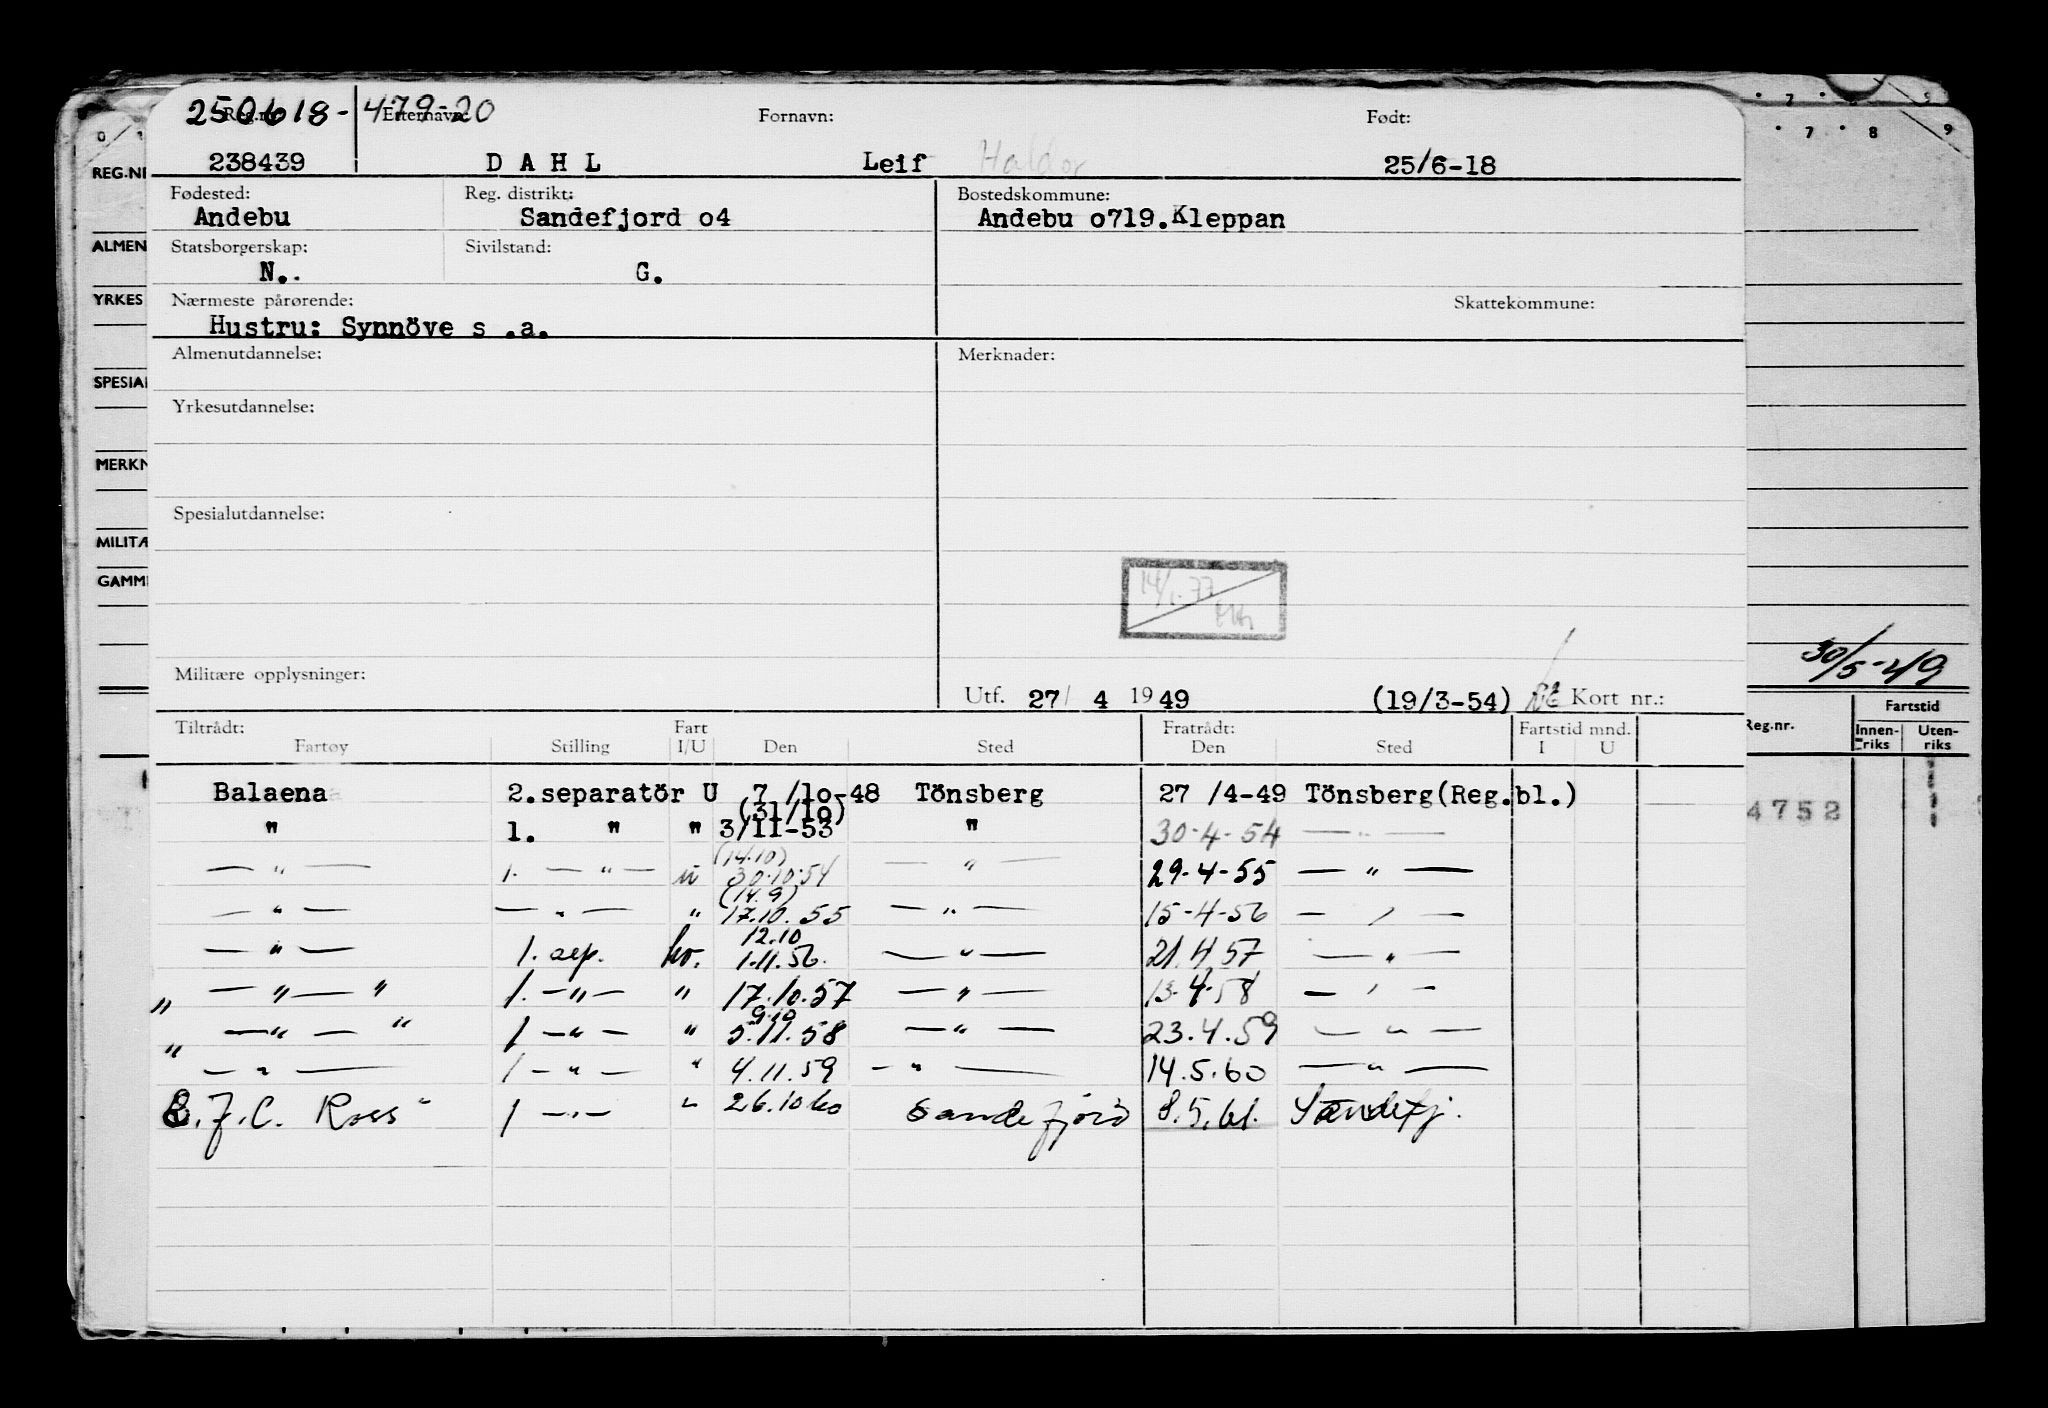 250618-47920
Reg.nr. Etternavn: Fornavn: Født:
238439 DAHL Leif Haldor 25/6-18
Fødested: Reg. distrikt: Bostedskommune:
Andebu Sandefjord o4 Andebu o719.Kleppan
Statsborgerskap: Sivilstand:
N.. G.
Nærmeste pårørende: Skattekommune:
Hustru: Synnöve s .a.
Almenutdannelse: Merknader:
Yrkesutdannelse:
Spesialutdannelse:
14/1.77
Militære opplysninger:
Utf. 27/ 4 1949 (19/3-54) Kort nr.:
Tiltrådt: Fart Fratrådt: Fartstid mnd.
Fartøy Stilling I/U Den Sted Den Sted I U
Balaena 2.separatör U 7 /lo-48 Tönsberg 27 /4-49 Tönsberg(Reg.bl.)
(31/lo)
" 1. " " 3/II-53 " 30-4-54 — " —
(14.10)
— " — 1. — " — u 30.10.54 — " — 29-4-55 — " —
(14.9)
— " — — " — " 17.10.55 — " — 15-4-56 — " —
12.10
— " — 1. sep. ho. 1.11.56. — " — 21.4.57 — " —
" — " — " 1. — " — " 17.10.57 — " — 13-4-58 — " —
9.10
" — " — " 1 — " — " 5.11.58 — " — 23.4.59 — " —
— " — 1 — " — " 4.11.59 — " — 14.5.60 — " —
J.C. Ross" 1 — " — " 26.10.60 Sandefjord 8.5.61. Sandefj.
REG.NR
ALMEN
YRKES
SPESIAL
MERKN
MILITÆ
GAMM
7 8 9
30/5-49
Reg.nr. Fartstid
Innen-riks Uten-riks
4752